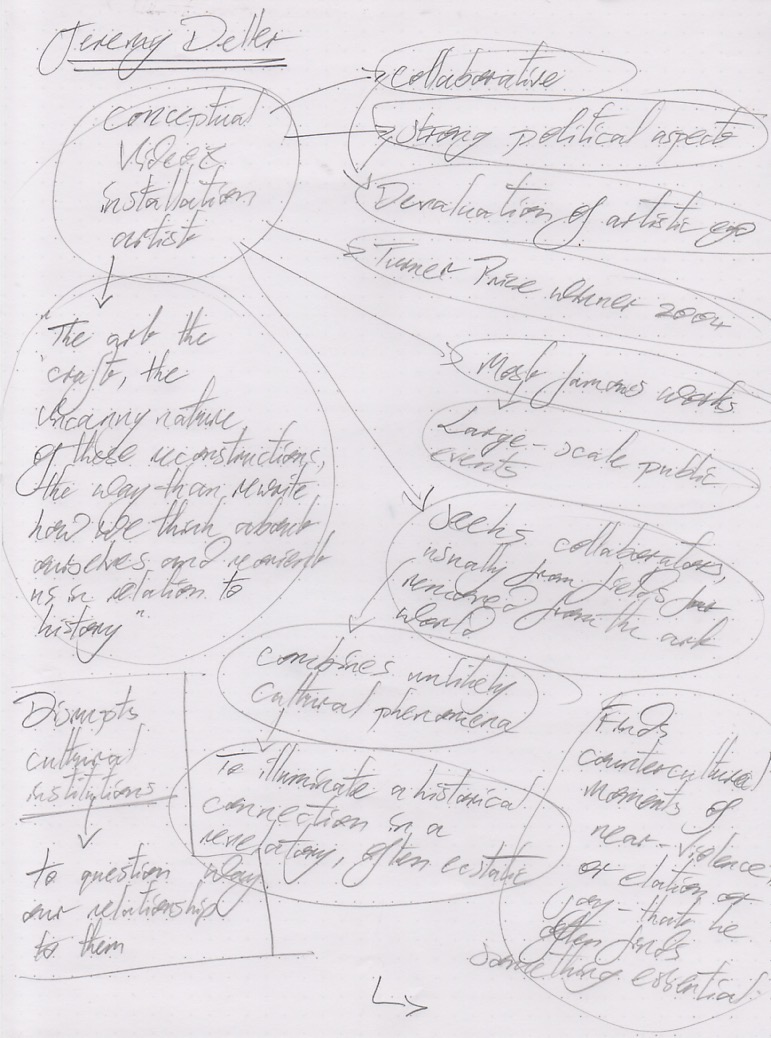 Jeremy Deller
conceptual
Video &
installation
artist
collaborative
strong political aspects
Devaluation of artistic ego
Turner Price winner 2004
Most famous works
Large-scale public
events
Seeks collaborators,
usually from fields far
removed from the art
world
"The art the
craft, the
uncanny nature
of these reconstructions,
the way than rewrite
how we think about
ourselves and reorient
us in relation to
history"
combines unlikely
cultural phenomena
To illuminate a historical
connection in a
revelatory, often ecstatic
way
Disrupts
cultural
institutions
to question
our relationship
to them
Finds
countercultural
moments of
near-violence,
or elation or
joy - that he
often finds
something essential